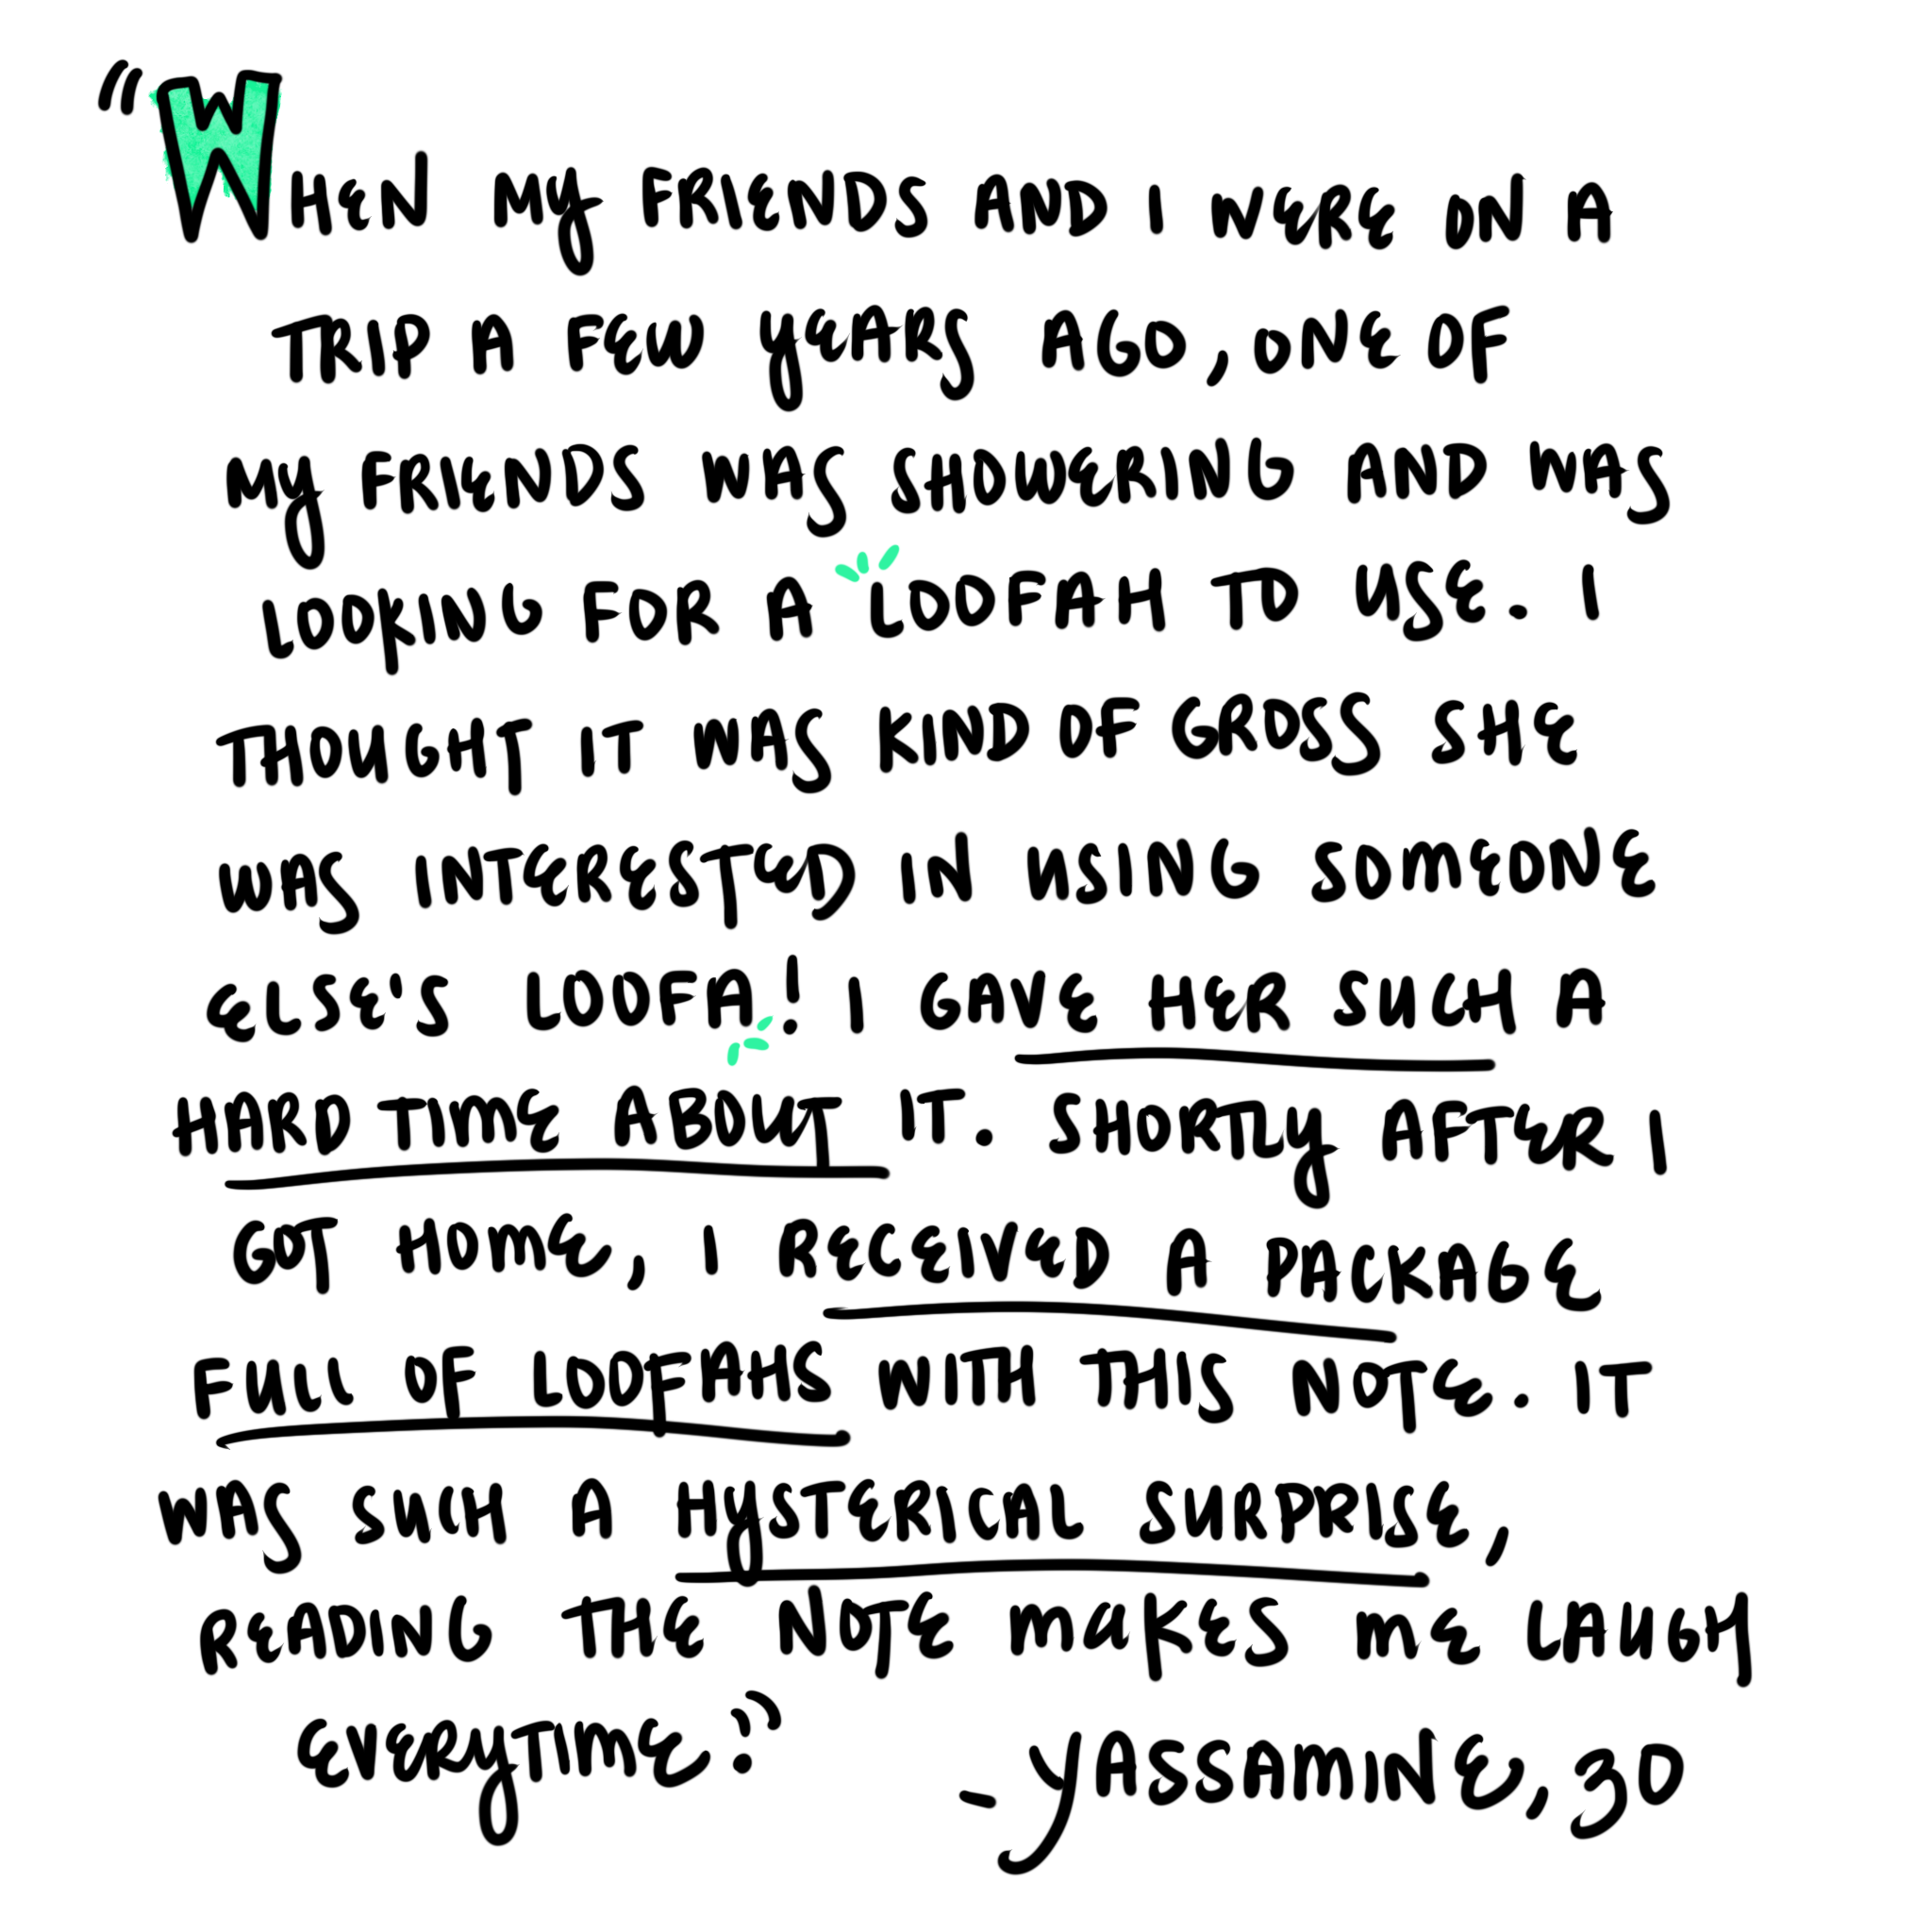 "WHEN MY FRIENDS AND I WERE ON A
TRIP A FEW YEARS AGO, ONE OF
MY FRIENDS WAS SHOWERING AND WAS
LOOKING FOR A LOOFAH TO USE. I
THOUGHT IT WAS KIND OF GROSS SHE
WAS INTERESTED IN USING SOMEONE
ELSE'S LOOFA! I GAVE HER SUCH A
HARD TIME ABOUT IT. SHORTLY AFTER I
GOT HOME, I RECEIVED A PACKAGE
FULL OF LOOFAHS WITH THIS NOTE. IT
WAS SUCH A HYSTERICAL SURPRISE,
READING THE NOTE MAKES ME LAUGH
EVERYTIME."
-YASSAMINE, 30